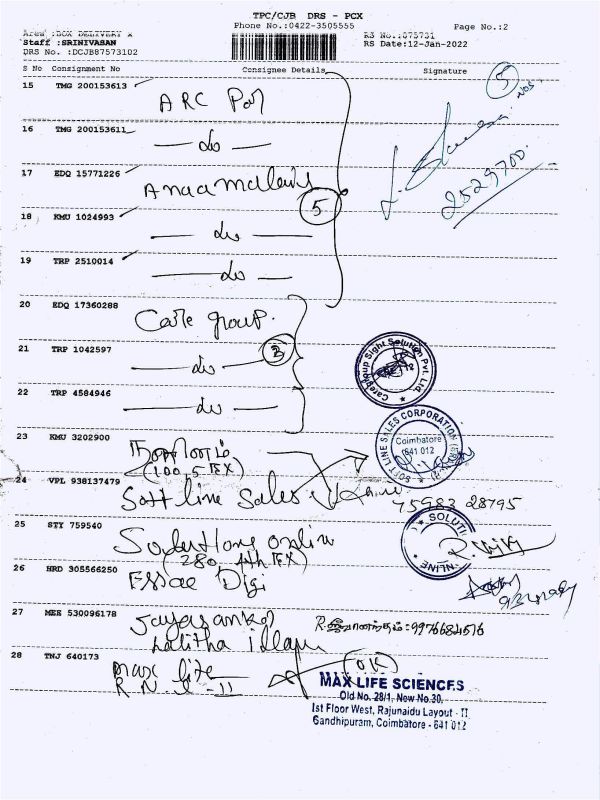 TPC/CJB DRS - PCX
Phone No.:0422-3505555
Page No.:2
Area :BOX DELIVERY
Staff :SRINIVASAN
R3 No.:075731
DRS No. :DCJB87573102
RS Date:12-Jan-2022
S No Consignment No Consignee Details Signature
15 TMG 200153613
ARC Par
5
16 TMG 200153611
do
17 EDQ 15771226
5
2529700
18 KMU 1024993
do
19 TRP 2510014
do
20 EDQ 17360288
Care group.
21 TRP 1042597
do
3
Caregroup Sight Solution Pvt. Ltd.
22 TRP 4584946
do
23 KMU 3202900
SOFT LINE SALES CORPORATION
Coimbatore
641 012
24 VPL 938137479
Soft line Sales
75983 28795
25 STY 759540
Solutions online
SOLUTI
NLINE
26 HRD 305566250
Essae Digi
27 MEE 530096178
Jayasankar
Lalitha illam
9976684516
28 TNJ 640173
max life
R.N.L-II
(OK)
MAX LIFE SCIENCES
Old No. 28/1, New No.30,
1st Floor West, Rajunaidu Layout - II
Gandhipuram, Coimbatore - 641 012